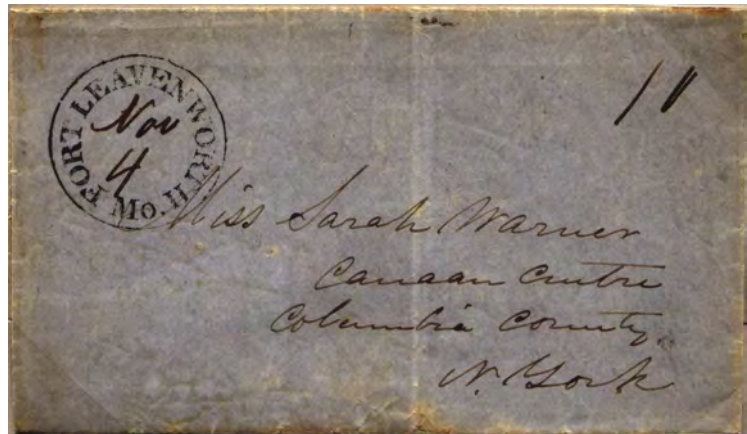 FORT LEAVENWORTH Mo.
Nov
4
Miss Sarah Warner
Canaan Centre
Columbia County.
N. York